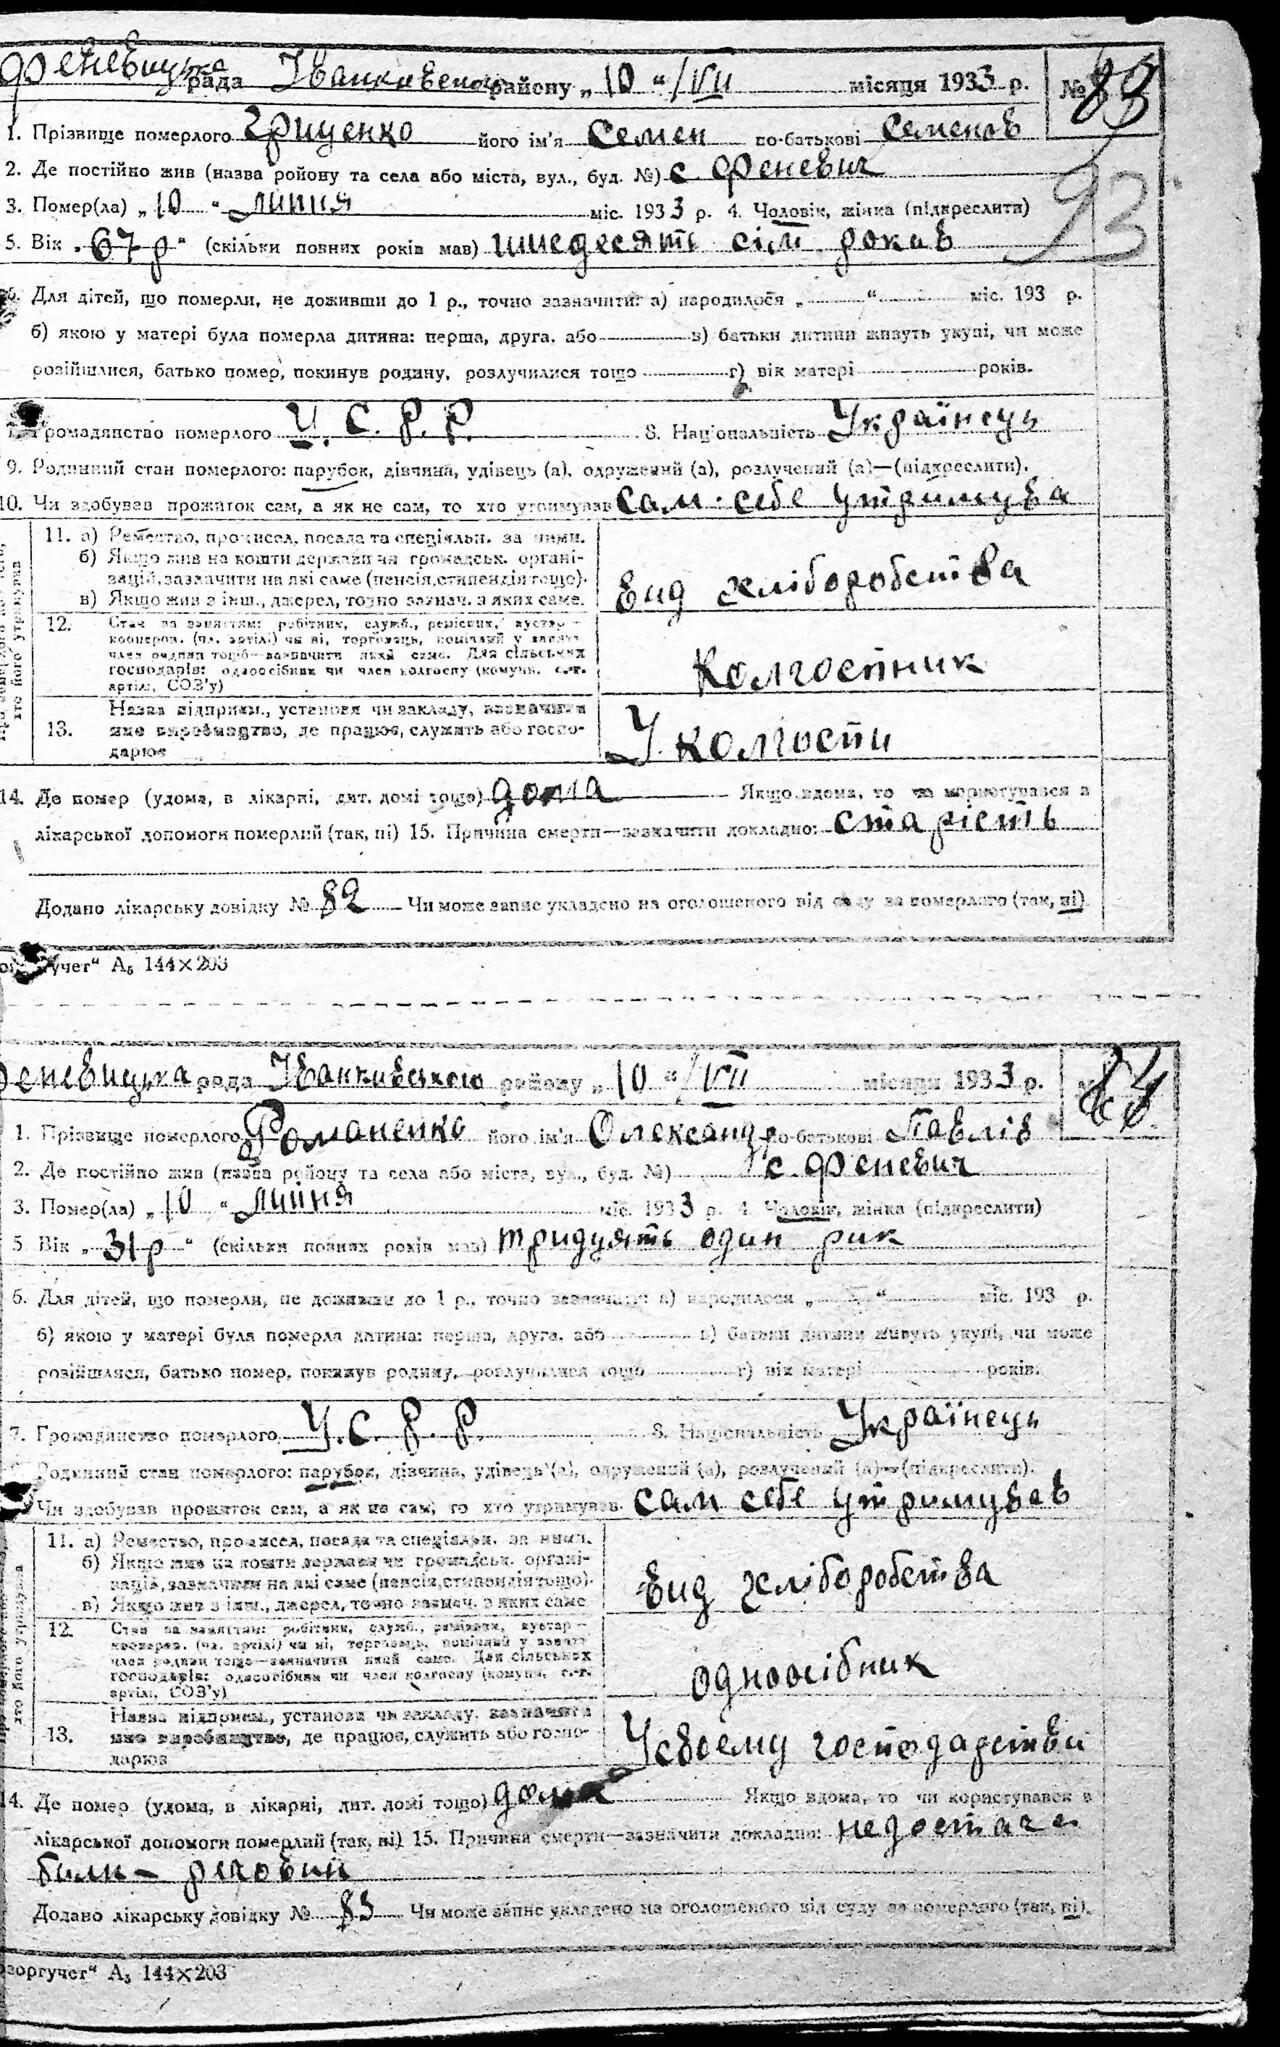 Феневицька рада Іванківського району „10“ /VII місяця 1933 р. № 83
93
1. Прізвище померлого Гриценко його ім'я Семен по-батькові Семенов
2. Де постійно жив (назва ройону та села або міста, вул., буд. №) с Феневич
3. Помер(ла) „10“ липня міс. 1933 р. 4. Чоловік, жінка (підкреслити)
5. Вік „67 р“ (скільки повних років мав) шисдесять сім років
6. Для дітей, що померли, не доживши до 1 р., точно зазначити: а) народилося „ “ міс. 193 р.
б) якою у матері була померла дитина: перша, друга, або в) батьки дитини живуть укупі, чи може
розійшлися, батько помер, покинув родину, розлучилися тощо г) вік матері років.
7. Громадянство померлого У. С. Р. Р. 8. Національність Українець
9. Родинний стан померлого: парубок, дівчина, удівець (а), одружений (а), розлучений (а)—(підкреслити).
10. Чи здобував прожиток сам, а як не сам, то хто утримував сам себе утримува
11. а) Ремество, промисел, посада та спеціяльн. за ними.
б) Якщо жив на кошти держави чи громадськ. органі-
зацій, зазначити на які саме (пенсія, стипендія тощо).
в) Якщо жив з інш., джерел, точно зазнач. з яких саме.
Вид хліборобства
12. Стан за заняттям: робітник, служб., ремісник, кустар—
кооперов. (чл. артілі) чи ні, торговець, помічний у занятт
член родини тощо—зазначити який саме. Для сільських
господарів: одноосібник чи член колгоспу (комуни, с.-г.
артілі, СОЗ'у)
Колгостник
13. Назва підприєм., установи чи закладу, зазначити
яке виробництво, де працює, служить або госпо-
дарює
У колгости
14. Де помер (удома, в лікарні, дит. домі тощо) дома Якщо вдома, то чи користувався з
лікарської допомоги померлий (так, ні) 15. Причина смерти—зазначити докладно: старість
Додано лікарську довідку № 82 Чи може запис укладено на оголошеного від суду за померлого (так, ні).
учет“ А₅ 144×203
Феневицька рада Іванківського району „10“ /VII місяця 1933 р. № 84
1. Прізвище померлого Романенко його ім'я Олександр по-батькові Павлів
2. Де постійно жив (назва ройону та села або міста, вул., буд. №) с Феневич
3. Помер(ла) „10“ липня міс. 1933 р. 4. Чоловік, жінка (підкреслити)
5 Вік „31 р“ (скільки повних років мав) тридцять один рик
6. Для дітей, що померли, не доживши до 1 р., точно зазначити: а) народилося „ “ міс. 193 р.
б) якою у матері була померла дитина: перша, друга, або в) батьки дитини живуть укупі, чи може
розійшлися, батько помер, покинув родину, розлучилися тощо г) вік матері років.
7. Громадянство померлого У. С. Р. Р. 8. Національність Українець
Родинний стан померлого: парубок, дівчина, удівець (а), одружений (а), розлучений (а)—(підкреслити).
Чи здобував прожиток сам, а як не сам, то хто утримував сам себе утримував
11. а) Ремество, промисел, посада та спеціяльн. за ними.
б) Якщо жив на кошти держави чи громадськ. органі-
зацій, зазначити на які саме (пенсія, стипендія тощо).
в) Якщо жив з інш., джерел, точно зазнач. з яких саме
Вид хліборобства
12. Стан за заняттям: робітник, служб., ремісник, кустар—
кооперов. (чл. артілі) чи ні, торговець, помічний у занятт
член родини тощо—зазначити який саме. Для сільських
господарів: одноосібник чи член колгоспу (комуни, с.-г.
артілі, СОЗ'у)
одноосібник
13. Назва підприєм., установи чи закладу, зазначити
яке виробництво, де працює, служить або госпо-
дарює
У своему господарстви
14. Де помер (удома, в лікарні, дит. домі тощо) дома Якщо вдома, то чи користувався з
лікарської допомоги померлий (так, ні) 15. Причина смерти—зазначити докладно: недостача
билк— ричовин
Додано лікарську довідку № 83 Чи може запис укладено на оголошеного від суду за померлого (так, ні).
оргучет“ А₅ 144×203